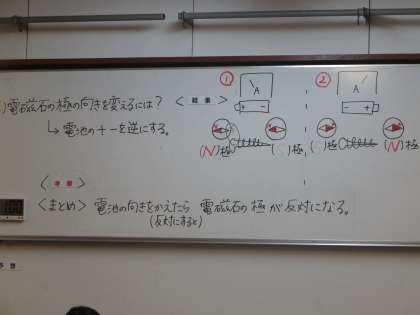 電磁石の極の向きを変えるには？
↳ 電池の+-を逆にする。
<結果>
① ②
A A
+ - - +
(N)極 ( )極 ( )極 (N)極
<考察>
<まとめ> 電池の向きをかえたら 電磁石の極が反対になる。
(反対にすると)